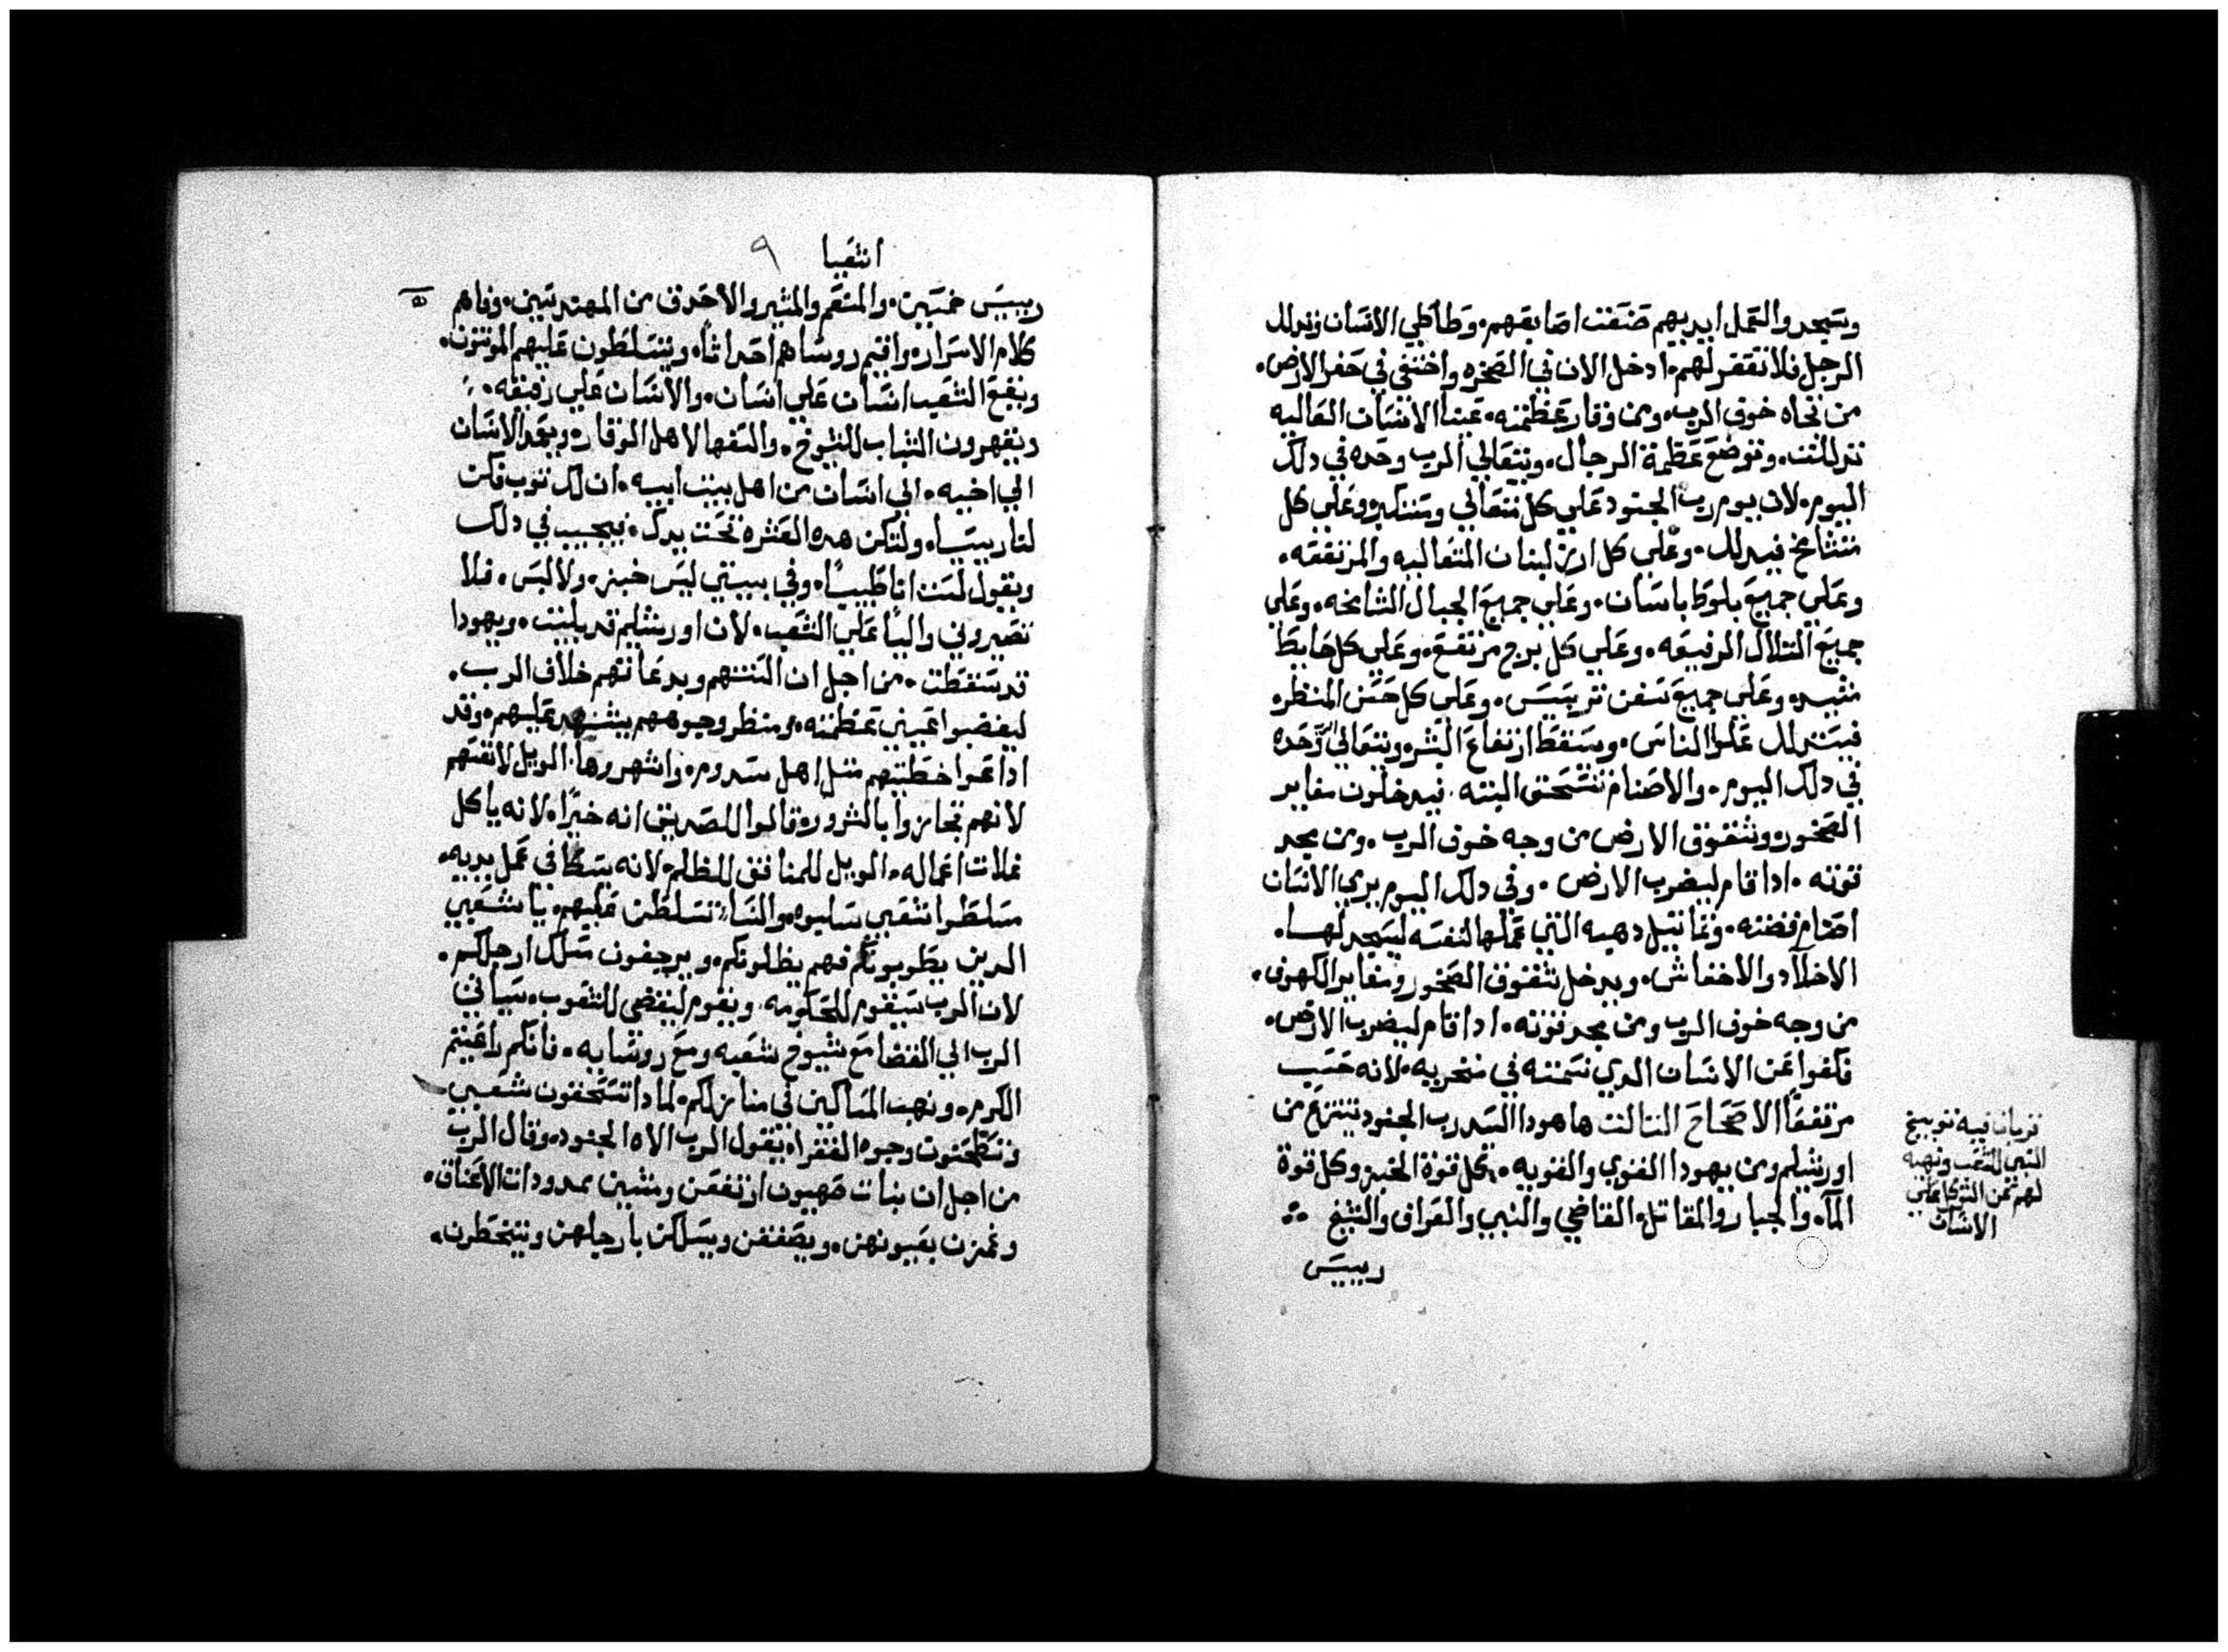 ويسجدوا لعمل ايديهم صنعت اصابعهم. وطاطي الانسان وتدلل
الرجل فلا تغفر لهم. ادخل الان في الصخره واختفي في حفر الارض.
من تجاه خوف الرب. ومن وقار عظمته. عينا الانسان العاليه
تدللت. وتوضع عظمة الرجال. ويتعالي الرب وحده في دلك
اليوم. لان يوم رب الجنود علي كل متعالي ومتكبر وعلي كل
متشامخ فيدلل. وعلي كل ارز لبنان المتعاليه والمرتفعه.
وعلي جميع بلوط باسان. وعلي جميع الجبال الشامخه. وعلي
جميع التلال الرفيعه. وعلي كل برج مرتفع. وعلي كل حايط
مشيد. وعلي جميع سفن ترسيس. وعلي كل حسن المنظر.
فيتدلل علوا الناس. ويسقط ارتفاع البشر ويتعالي الرب وحده
في دلك اليوم. والاصنام تنسحق البته. فيدخلون مغاير
الصخور وشقوق الارض من وجه خوف الرب. ومن مجد
قوته. ادا قام ليضرب الارض. وفي دلك اليوم يرمي الانسان
اصنام فضته. وتماتيل دهبه التي عملها لنفسه ليسجد لها.
الاخلآد والاخفاش. ويدخل شقوق الصخور ومغاير الكهوف.
من وجه خوف الرب ومن مجد قوته. ادا قام ليضرب الارض.
فكفوا عن الانسان الدي نسمته في منخريه. لانه حسب
مرتفعا الاصحاح التالت ها هودا السيد رب الجنود ينتزع من
اورشليم ومن يهودا القوي والقويه. كل قوة الخبز وكل قوة
المآء. والجبار والمقاتل. القاضي والنبي والعراف والشيخ
رييس
تريان فيه توبيخ
النبي للشعب ونهيه
لهم عن التوكل علي
الانسان
اشعيا ٩
رييس خمسين. والمنعم والمشير والاحدق من المهندسين. وفاهم
كلام الاسرار. واقيم روساهم احداثا. ويتسلطون عليهم الموننون.
ويقع الشعب انسان علي انسان. والانسان علي رفيقه.
ويقهرون الشباب للشيوخ. والسفها لاهل الوقار. ويعمد الانسان
الي اخيه. الي انسان من اهل بيت ابيه. ان لك توب فكن
لنا رييسا. ولتكن هده العثره تحت يدك. فيجيب في دلك
ويقول لست انا طبيبا. وفي بيتي ليس خبز. ولا لبس. فلا
تصيروني واليا علي الشعب. لان اورشليم قد بليت. ويهودا
قد سقطت. من اجل ان السنتهم وبدعاتهم خلاف الرب.
ليغضبوا عيني عظمته. ومنظر وجوههم يشهد عليهم. وقد
اداعوا خطيتهم متل اهل سدوم. واشهروها. الويل لانفسهم
لانهم تجازوا بالشرور. قالوا للصديق انه خيرا. لانه ياكل
غلات اعماله. الويل للمنافق للظلم. لانه يكافي عمل يديه.
متسلطوا شعبي سلبوه. والنسا تسلطن عليهم. يا شعبي
الدين يطوبونكم فهم يظلونكم. ويرجفون مسلك ارجلكم.
لان الرب سيقوم للحكومه. ويقوم ليقضي للشعوب. سياتي
الرب الي القضا مع شيوخ شعبه ومع روسايه. فانكم راعيتم
الكرم. ونهب المساكين في منازلكم. لمادا تسحقون شعبي
وتطحنون وجوه الفقرا. يقول الرب الاه الجنود. وقال الرب
من اجل ان بنات صهيون ارتفعن ومشين ممدودات الاعناق.
وغمزن بعيونهن. ويصفقن ويسلكن بارجلهن ويتخطرن.